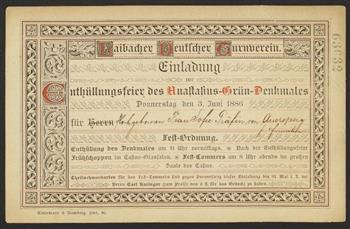 Laibacher Deutscher Turnverein.
Einladung
zur
Enthüllungsfeier des Anastasius-Grün-Denkmales
Donnerstag den 3. Juni 1886
für Herrn Hochgeboren Frau Grafen von Auersperg
Fest-Ordnung.
Enthüllung des Denkmales um 11 Uhr vormittags. Nach der Enthüllungsfeier
Frühschoppen im Casino-Glassalon. Fest-Commers um 8 Uhr abends im großen
Saale des Casino.
Theilnehmerkarten für den Fest-Commers sind gegen Vorweisung dieser Einladung bis 31. Mai l. J. bei
Herrn Carl Karinger zum Preise von 2 fl. für das Gedeck zu haben.
Kleinmayr & Bamberg,